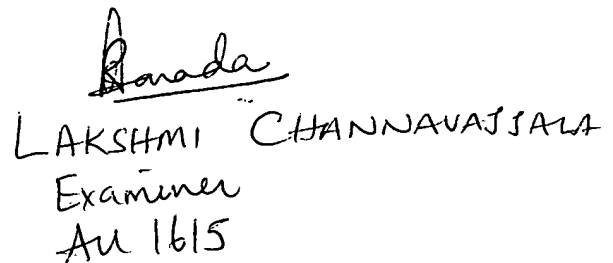 LAKSHMI CHANNAVAJJALA
Examiner
AU 1615